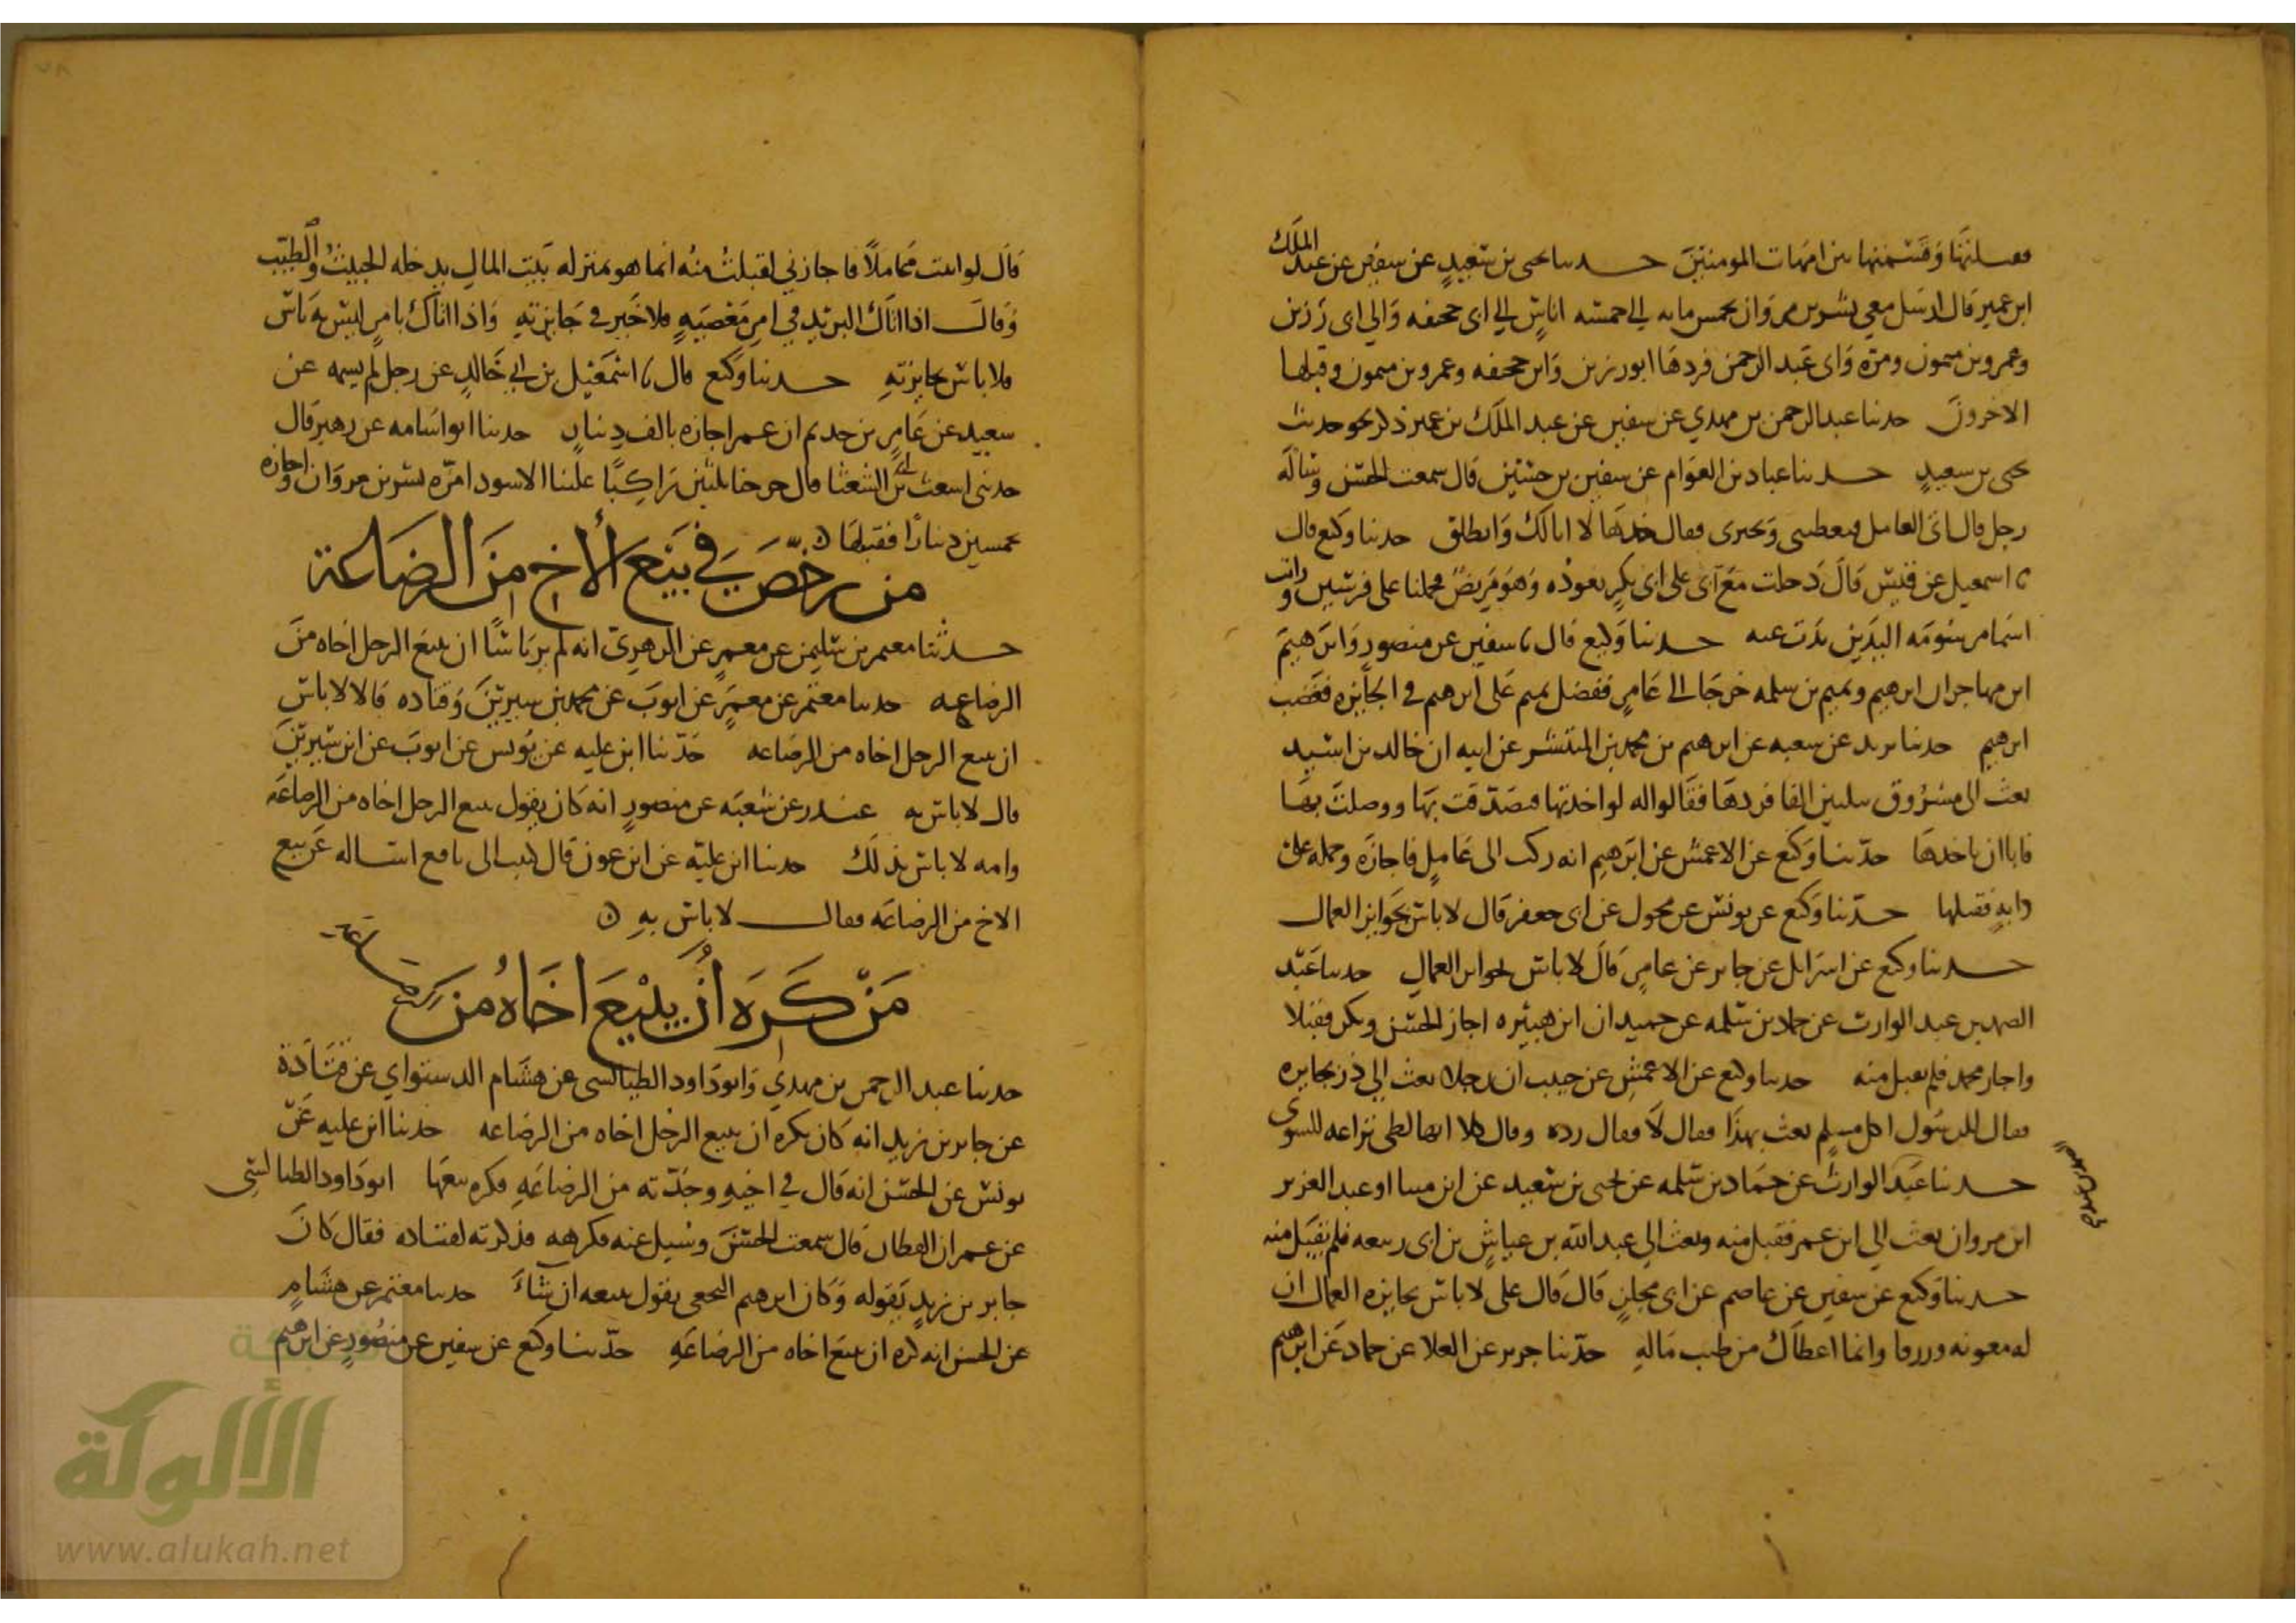 فقبلتها وقسمتها بين امهات المومنين حدثنا يحيى بن سعيد عن سفين عن عبد الملك
ابن عمير قال ارسل معي بشر بن مروان بخمس مايه الى خمسه اناس الي ابي جحيفه والي ابي رزين
وعمرو بن ميمون ومره وابي عبد الرحمن فردها ابو رزين وابو جحيفه وعمرو بن ميمون وقبلها
الاخرون حدثنا عبد الرحمن بن مهدي عن سفين عن عبد الملك بن عمير ذكر نحو حديث
يحيى بن سعيد حدثنا عباد بن العوام عن سفين بن حسين قال سمعت الحسن وساله
رجل قال اتى العامل فيعطيني ويجيزني فقال خذها لا ابالك وانطلق حدثنا وكيع قال
نا اسمعيل عن قيس قال دخلت مع ابي على ابي بكر نعوده وهو مريض فحملنا على فرسين ورايت
اسما موشومه اليدين تذب عنه حدثنا وكيع قال نا سفين عن منصور وابرهيم
ابن مهاجر ان ابرهيم وتميم بن سلمه خرجا الى عامر ففضل تميم على ابرهيم في الجايزه فغضب
ابرهيم حدثنا يزيد عن شعبه عن ابرهيم بن محمد بن المنتشر عن ابيه ان خالد بن اسيد
بعث الى مسروق بثلثين الفا فردها فقالوا له لو اخذتها فتصدقت بها ووصلت بها
فابا ان ياخذها حدثنا وكيع عن الاعمش عن ابرهيم انه ركب الى عامل فاجازه وحمله على
دابه فقبلها حدثنا وكيع عن يونس عن مخول عن ابي جعفر قال لا باس بجوايز العمال
حدثنا وكيع عن اسرايل عن جابر عن عامر قال لا باس بجوايز العمال حدثنا عبد
الصمد بن عبد الوارث عن حماد بن سلمه عن حميد ان ابن هبيره اجاز الحسن وبكر فقبلا
واجاز محمد فلم يقبل منه حدثنا وكيع عن الاعمش عن حبيب ان رجلا بعث الي ذر بجايزه
فقال للرسول اكل مسلم بعث بهذا فقال لا فقال رده وقال كلا انها لظى نزاعه للشوى
حدثنا عبد الوارث عن حماد بن سلمه عن يحيى بن سعيد عن ابن مينا او عبد العزيز
ابن مروان بعث الي ابن عمر فقبل منه وبعث الي عبد الله بن عياش بن ابي ربيعه فلم يقبل منه
حدثنا وكيع عن سفين عن عاصم عن ابي مجلز قال قال علي لا باس بجايزه العمال ان
له معونه ورزقا وانما اعطاك من طيب ماله حدثنا جرير عن العلا عن حماد عن ابرهيم
قال لو اتيت عاملا فاجازني لقبلت منه انما هو بمنزله بيت المال يدخله الخبيث والطيب
وقال اذا اتاك البريد في امر معصيه فلا خير في جايزته واذا اتاك بامر ليس به باس
فلا باس بجايزته حدثنا وكيع قال نا اسمعيل بن ابي خالد عن رجل لم يسمه عن
سعيد عن عامر بن حديم ان عمر اجازه بالف دينار حدثنا ابو اسامه عن زهير قال
حدثني اشعث بن ابي الشعثا قال خرجنا ثلثين راكبا علينا الاسود امره بشر بن مروان واجازه
بخمسين دينارا فقبلها
من رخص في بيع الاخ من الرضاعة
حدثنا معتمر بن سليمن عن معمر عن الزهري انه لم ير باسا ان يبيع الرجل اخاه من
الرضاعه حدثنا معتمر عن معمر عن ايوب عن محمد بن سيرين وقتاده قالا لا باس
ان يبيع الرجل اخاه من الرضاعه حدثنا ابن عليه عن يونس عن ايوب عن ابن سيرين
قال لا باس به غندر عن شعبه عن منصور انه كان يقول يبيع الرجل اخاه من الرضاعه
وامه لا باس بذلك حدثنا ابن عليه عن ابن عون قال كتبت الى نافع اساله عن بيع
الاخ من الرضاعه فقال لا باس به
من كره ان يبيع اخاه من الرضاعة
حدثنا عبد الرحمن بن مهدي وابو داود الطيالسي عن هشام الدستواي عن قتادة
عن جابر بن زيد انه كان يكره ان يبيع الرجل اخاه من الرضاعه حدثنا ابن عليه عن
يونس عن الحسن انه قال في اخيه وجدته من الرضاعه فكره بيعها ابو داود الطيالسي
عن عمران القطان قال سمعت الحسن وسيل عنه فكرهه فذكرته لقتاده فقال كان
جابر بن زيد يقوله وكان ابرهيم النخعي يقول يبيعه ان شاء حدثنا معتمر عن هشام
عن الحسن انه كره ان يبيع اخاه من الرضاعه حدثنا وكيع عن سفين عن منصور عن ابرهيم
الألوكة
www.alukah.net